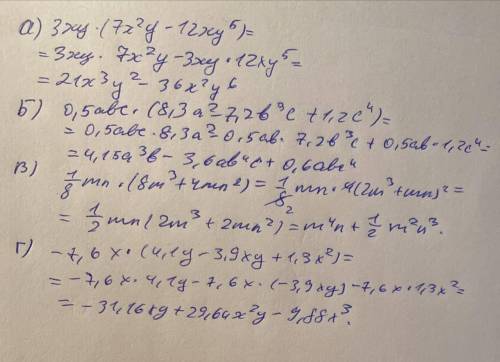 а) 3xy · (7x²y - 12xy⁵) =
= 3xy · 7x²y - 3xy · 12xy⁵ =
= 21x³y² - 36x²y⁶
Б) 0,5abc · (8,3a² - 7,2b³c + 1,2c⁴) =
= 0,5abc · 8,3a² - 0,5ab · 7,2b³c + 0,5ab · 1,2c⁴ =
= 4,15a³b - 3,6ab⁴c + 0,6abc⁴
в) 1/8 mn · (8m³ + 4mn²) = 1/8 mn · 4(2m³ + mn)² =
2
= 1/2 mn (2m³ + 2mn²) = m⁴n + 1/2 m²n³.
г) -7,6x · (4,1y - 3,9xy + 1,3x²) =
= -7,6x · 4,1y - 7,6x · (-3,9xy) - 7,6x · 1,3x² =
= -31,16xy + 29,64x²y - 9,88x³.